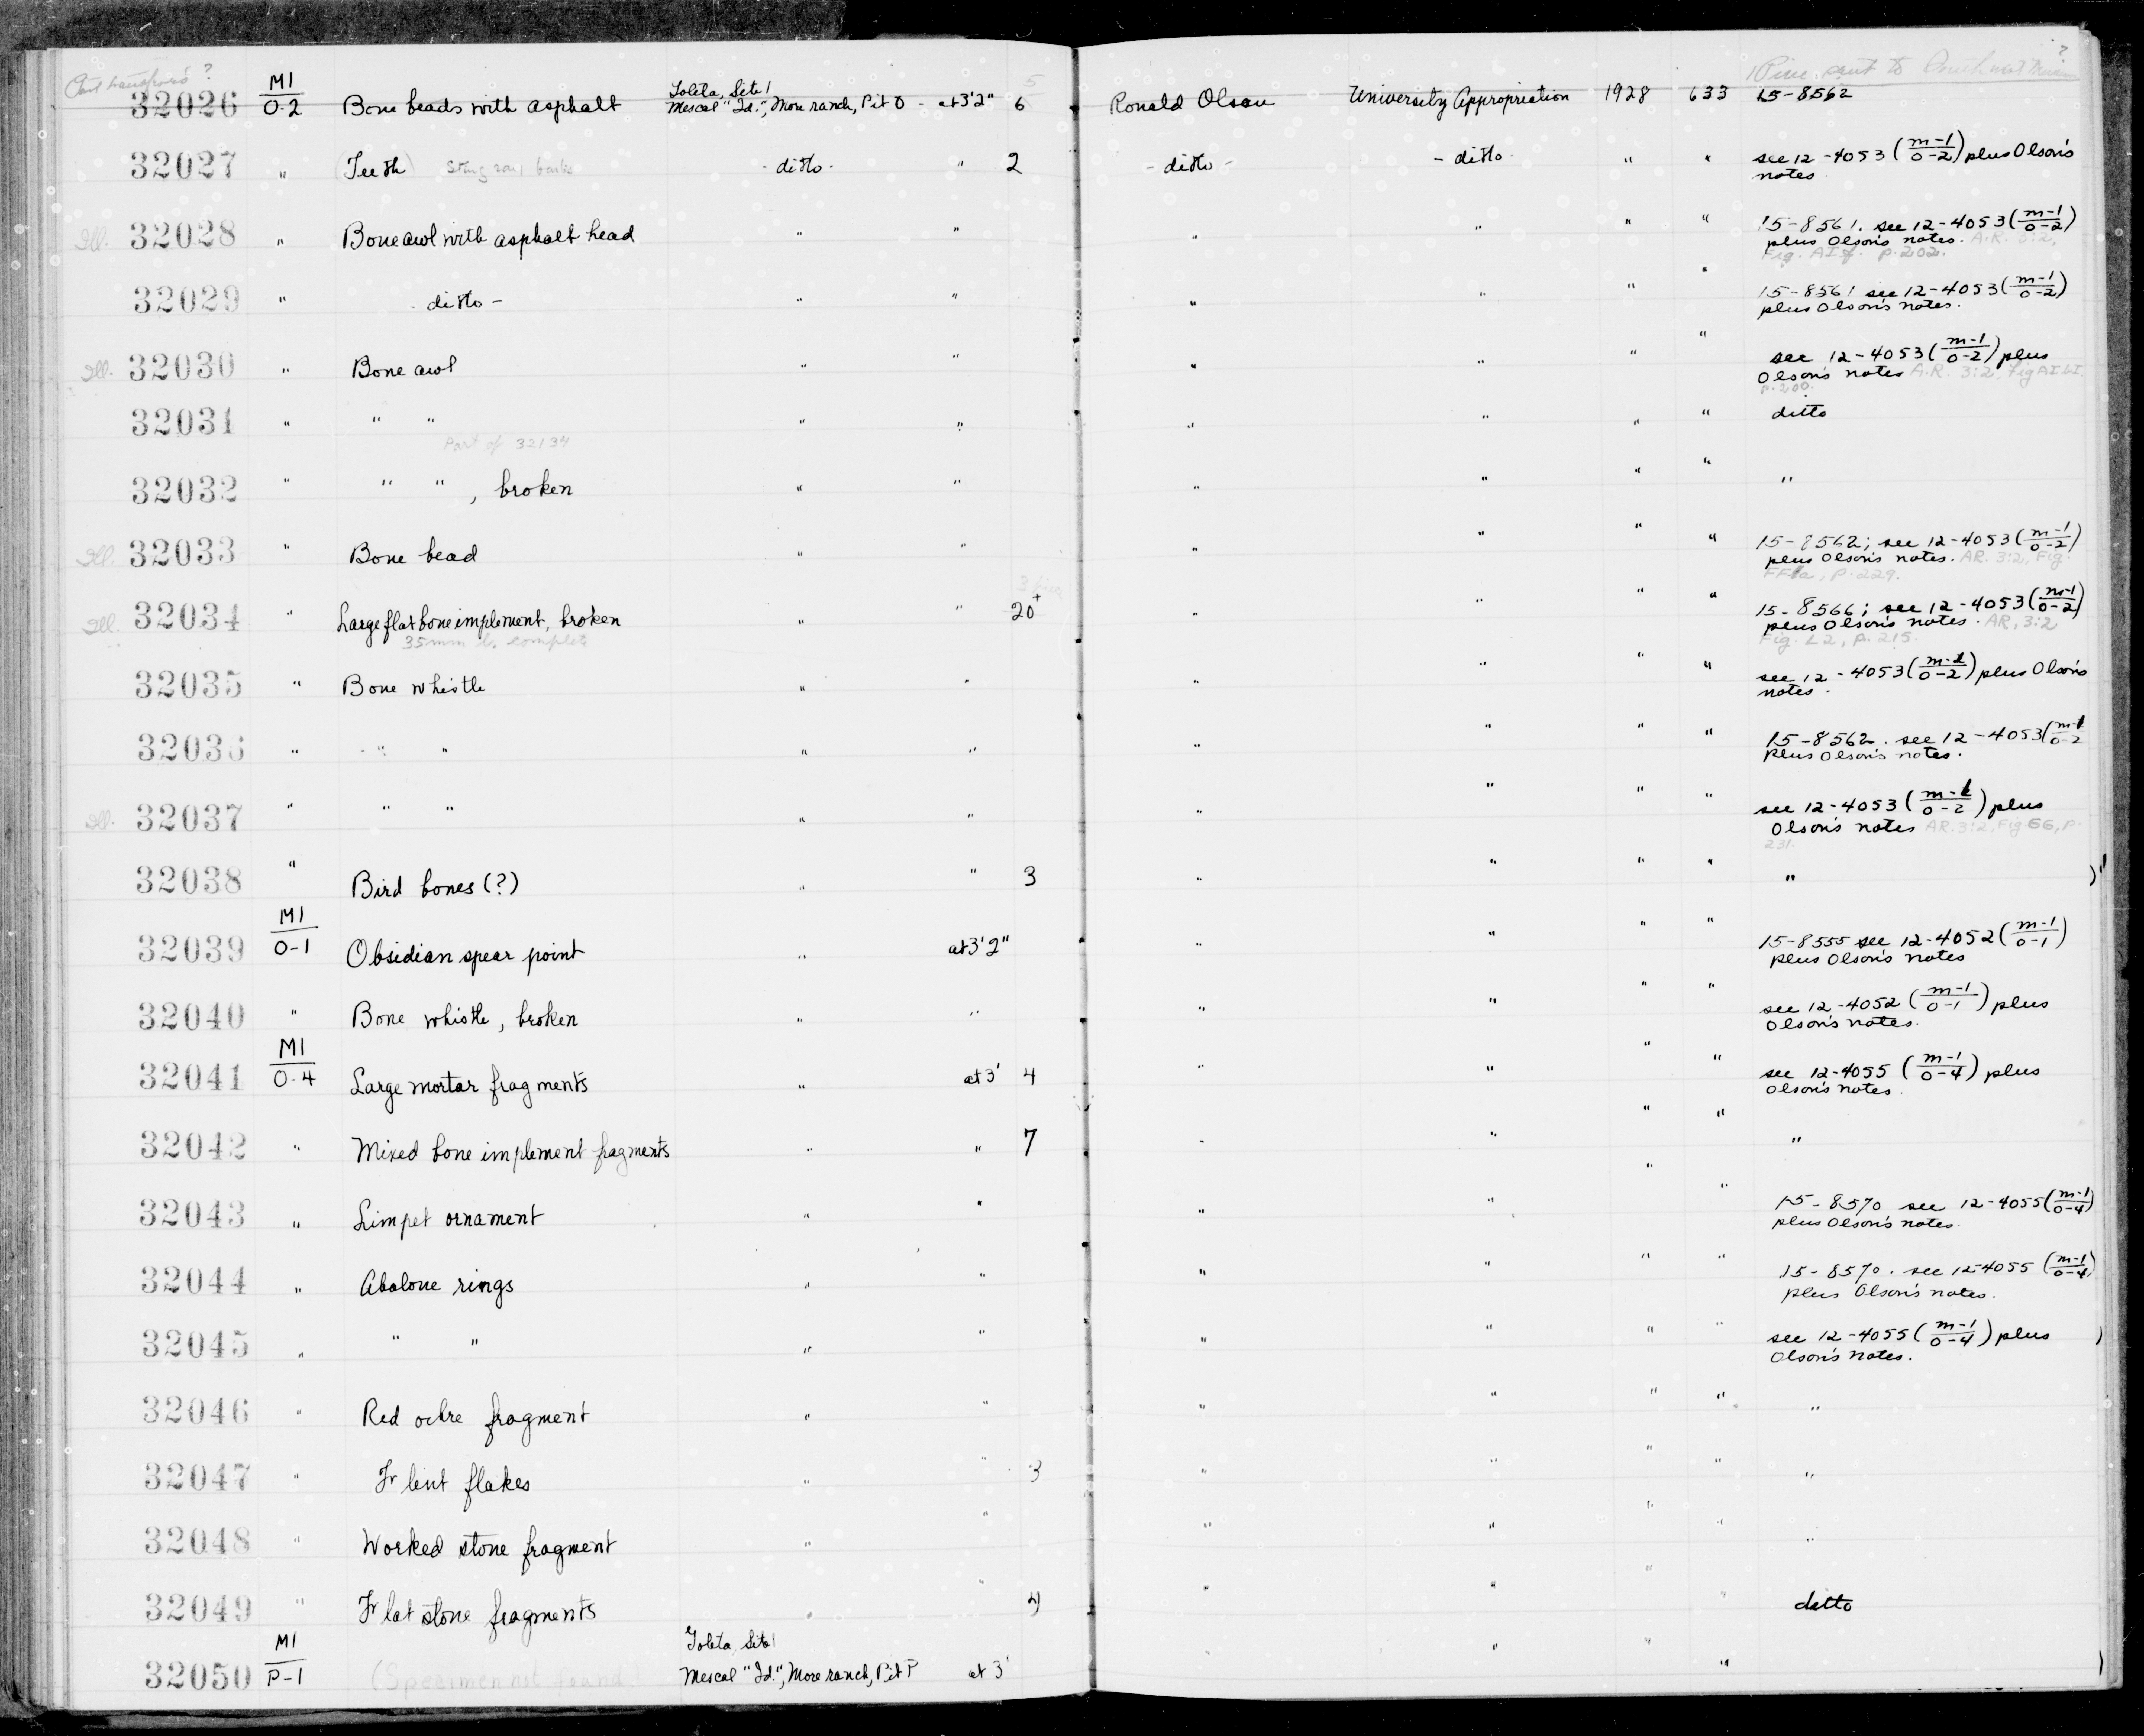 Part transferred ?
1 Piece sent to Southwest Museum ?
5
32026 M1/0-2 Bone beads with asphalt Goleta, Site 1 Mescal "Id.", More ranch, Pit O - at 3'2" 6 Ronald Olson University Appropriation 1928 633 15-8562
32027 " (Teeth) Sting ray barbs - ditto - " 2 - ditto - - ditto - " " see 12-4053 (m-1/0-2) plus Olson's
notes.
Ill. 32028 " Bone awl with asphalt head " " " " " " 15-8561. see 12-4053 (m-1/0-2)
plus Olson's notes. A.R. 3:2,
Fig. AI f. p. 202.
32029 " - ditto - " " " " " " 15-8561 see 12-4053 (m-1/0-2)
plus Olson's notes.
Ill. 32030 " Bone awl " " " " " " see 12-4053 (m-1/0-2) plus
Olson's notes A.R. 3:2, Fig AI bI
p. 200.
32031 " " " " " " " " " ditto
Part of 32134
32032 " " " , broken " " " " " " "
Ill. 32033 " Bone bead " " " " " " 15-8562; see 12-4053 (m-1/0-2)
plus Olson's notes. AR. 3:2, Fig.
FF1a, P. 229.
3 pieces
Ill. 32034 " Large flat bone implement, broken " " 20+ " " " " 15-8566; see 12-4053 (m-1/0-2)
35mm l. complete
plus Olson's notes. AR, 3:2
Fig. L2, p. 215.
32035 " Bone whistle " " " " " " see 12-4053 (m-1/0-2) plus Olson's
notes.
32036 " " " " " " " " " 15-8562. see 12-4053 (m-1/0-2
plus Olson's notes.
Ill. 32037 " " " " " " " " " see 12-4053 (m-1/0-2) plus
Olson's notes AR. 3:2, Fig GG, P.
231.
32038 " Bird bones (?) " " 3 " " " " "
32039 M1/0-1 Obsidian spear point " at 3'2" " " " " 15-8555 see 12-4052 (m-1/0-1)
plus Olson's notes
32040 " Bone whistle, broken " " " " " " see 12-4052 (m-1/0-1) plus
Olson's notes.
32041 M1/0-4 Large mortar fragments " at 3' 4 " " " " see 12-4055 (m-1/0-4) plus
Olson's notes.
32042 " Mixed bone implement fragments " " 7 " " " " "
32043 " Limpet ornament " " " " " " 15-8570 see 12-4055 (m-1/0-4)
plus Olson's notes.
32044 " Abalone rings " " " " " " 15-8570. see 12-4055 (m-1/0-4)
plus Olson's notes.
32045 " " " " " " " " " see 12-4055 (m-1/0-4) plus
Olson's notes.
32046 " Red ochre fragment " " " " " " "
32047 " Flint flakes " " 3 " " " " "
32048 " Worked stone fragment " " " " " " "
32049 " Flat stone fragments " " 4 " " " " ditto
32050 M1/P-1 (Specimen not found) Goleta, Site 1 Mescal "Id.", More ranch, Pit P at 3' " " "